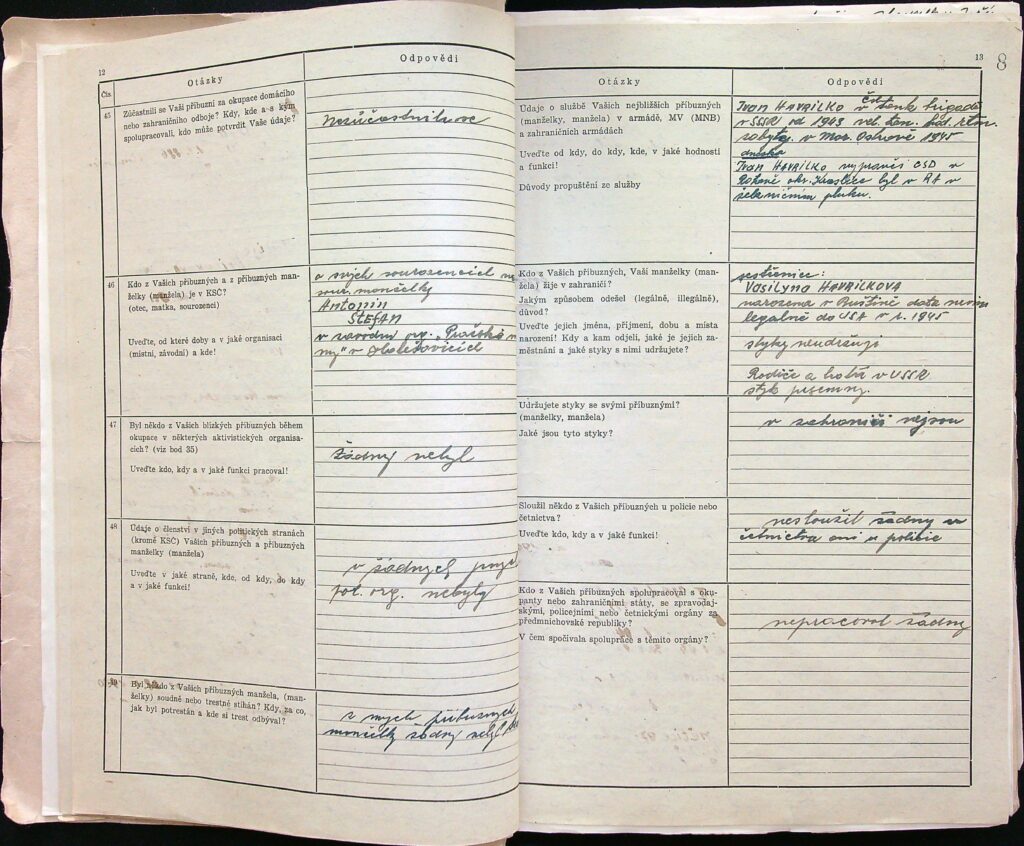 12
Čís.
Otázky
Odpovědi
45
Zúčastnili se Vaši příbuzní za okupace domácího
nebo zahraničního odboje? Kdy, kde a s kým
spolupracovali, kdo může potvrdit Vaše údaje?
Nezúčastnili se
46
Kdo z Vašich příbuzných a z příbuzných man-
želky (manžela) je v KSČ?
(otec, matka, sourozenci)
Uveďte, od které doby a v jaké organisaci
(místní, závodní) a kde!
o svých sourozencích
sour. manželky
Antonín
ŠTEFAN
v závodní org.
v
47
Byl někdo z Vašich blízkých příbuzných během
okupace v některých aktivistických organisa-
cích? (viz bod 35)
Uveďte kdo, kdy a v jaké funkci pracoval!
žádný nebyl
48
Údaje o členství v jiných politických stranách
(kromě KSČ) Vašich příbuzných a příbuzných
manželky (manžela)
Uveďte v jaké straně, kde, od kdy, do kdy
a v jaké funkci!
v žádných
pol. org. nebyly
49
Byl někdo z Vašich příbuzných manžela, (man-
želky) soudně nebo trestně stíhán? Kdy, za co,
jak byl potrestán a kde si trest odbýval?
z mých příbuzných
manželky žádný nebyl
13
8
Otázky
Odpovědi
Údaje o službě Vašich nejbližších příbuzných
(manželky, manžela) v armádě, MV (MNB)
a zahraničních armádách
Uveďte od kdy, do kdy, kde, v jaké hodnosti
a funkci!
Důvody propuštění ze služby
Ivan HAVRILKO v tank brigadě
v SSSR od 1943 vel. tan. hod. rtm.
v Mor. Ostravě 1945
Ivan HAVRILKO ČSD v
okr. Kraslice byl v RA v
pluku.
Kdo z Vašich příbuzných, Vaší manželky (man-
žela) žije v zahraničí?
Jakým způsobem odešel (legálně, illegálně),
důvod?
Uveďte jejich jména, příjmení, dobu a místa
narození! Kdy a kam odjeli, jaké je jejich za-
městnání a jaké styky s nimi udržujete?
sestřenice:
Vasilyna HAVRILKOVA
narozena v Buštině data nevím
legalně do USA v r. 1945
styky neudržuji
Rodiče a v USSR
styk písemný.
Udržujete styky se svými příbuznými?
(manželky, manžela)
Jaké jsou tyto styky?
v zahraničí nejsou
Sloužil někdo z Vašich příbuzných u policie nebo
četnictva?
Uveďte kdo, kdy a v jaké funkci!
nesloužil žádný u
četnictva ani u policie
Kdo z Vašich příbuzných spolupracoval s oku-
panty nebo zahraničními státy, se zpravodaj-
skými, policejními nebo četnickými orgány za
předmnichovské republiky?
V čem spočívala spolupráce s těmito orgány?
nepracoval žádný